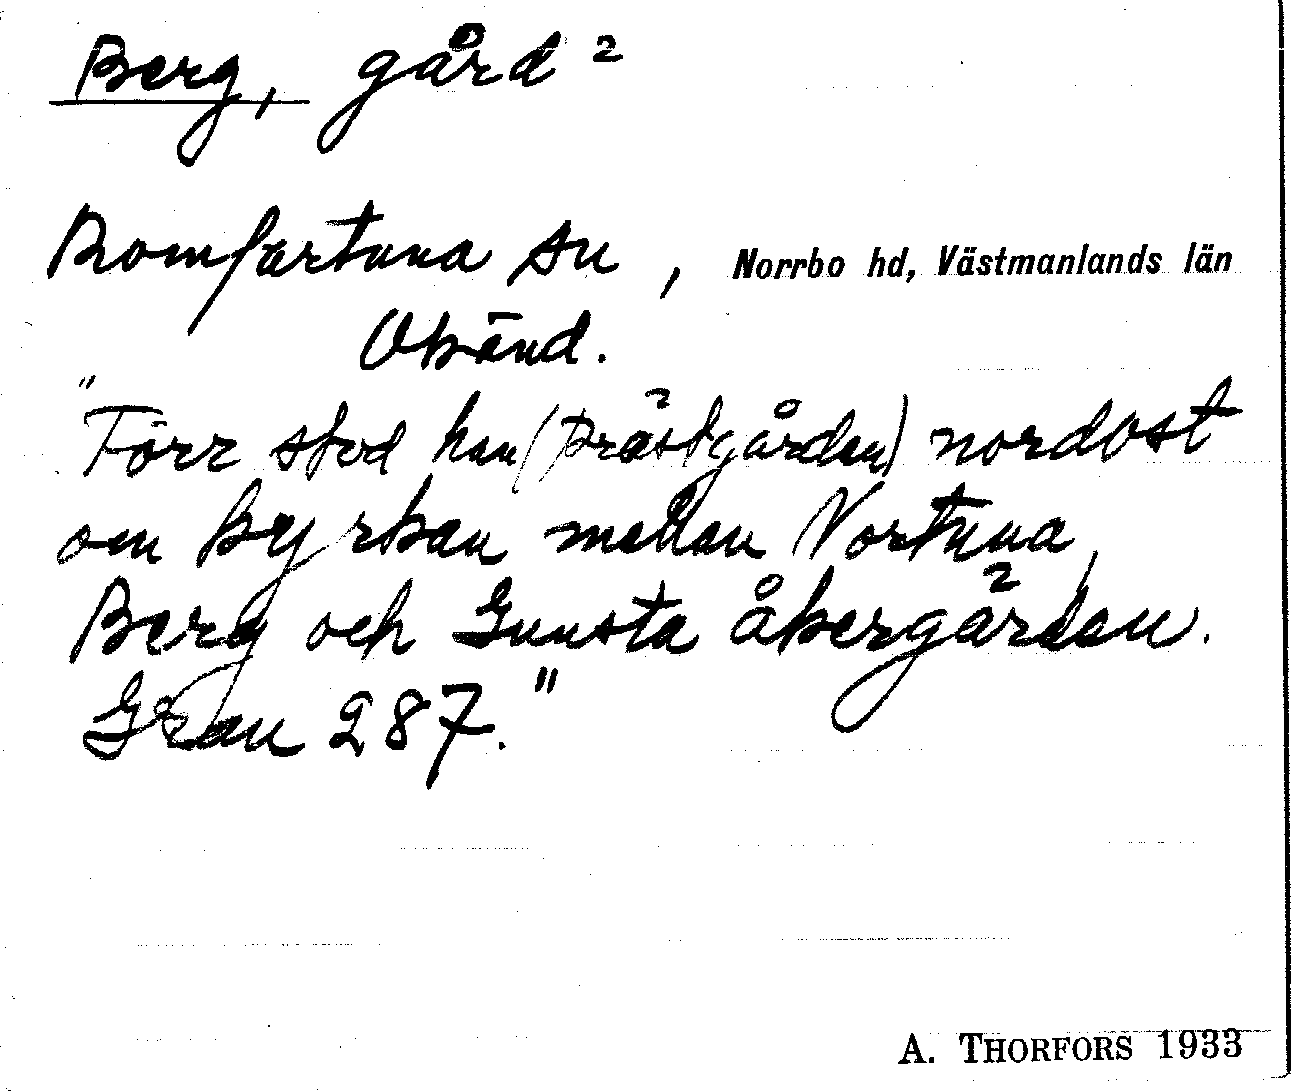 Berg, gård ²
Romfartuna sn, Norrbo hd, Västmanlands län
Okänd.
"Förr stod han (Prästgården) nordost
om kyrkan mellan Vortuna,
Berg och Gunsta åkergärdan.
Grau 287."
A. THORFORS 1933